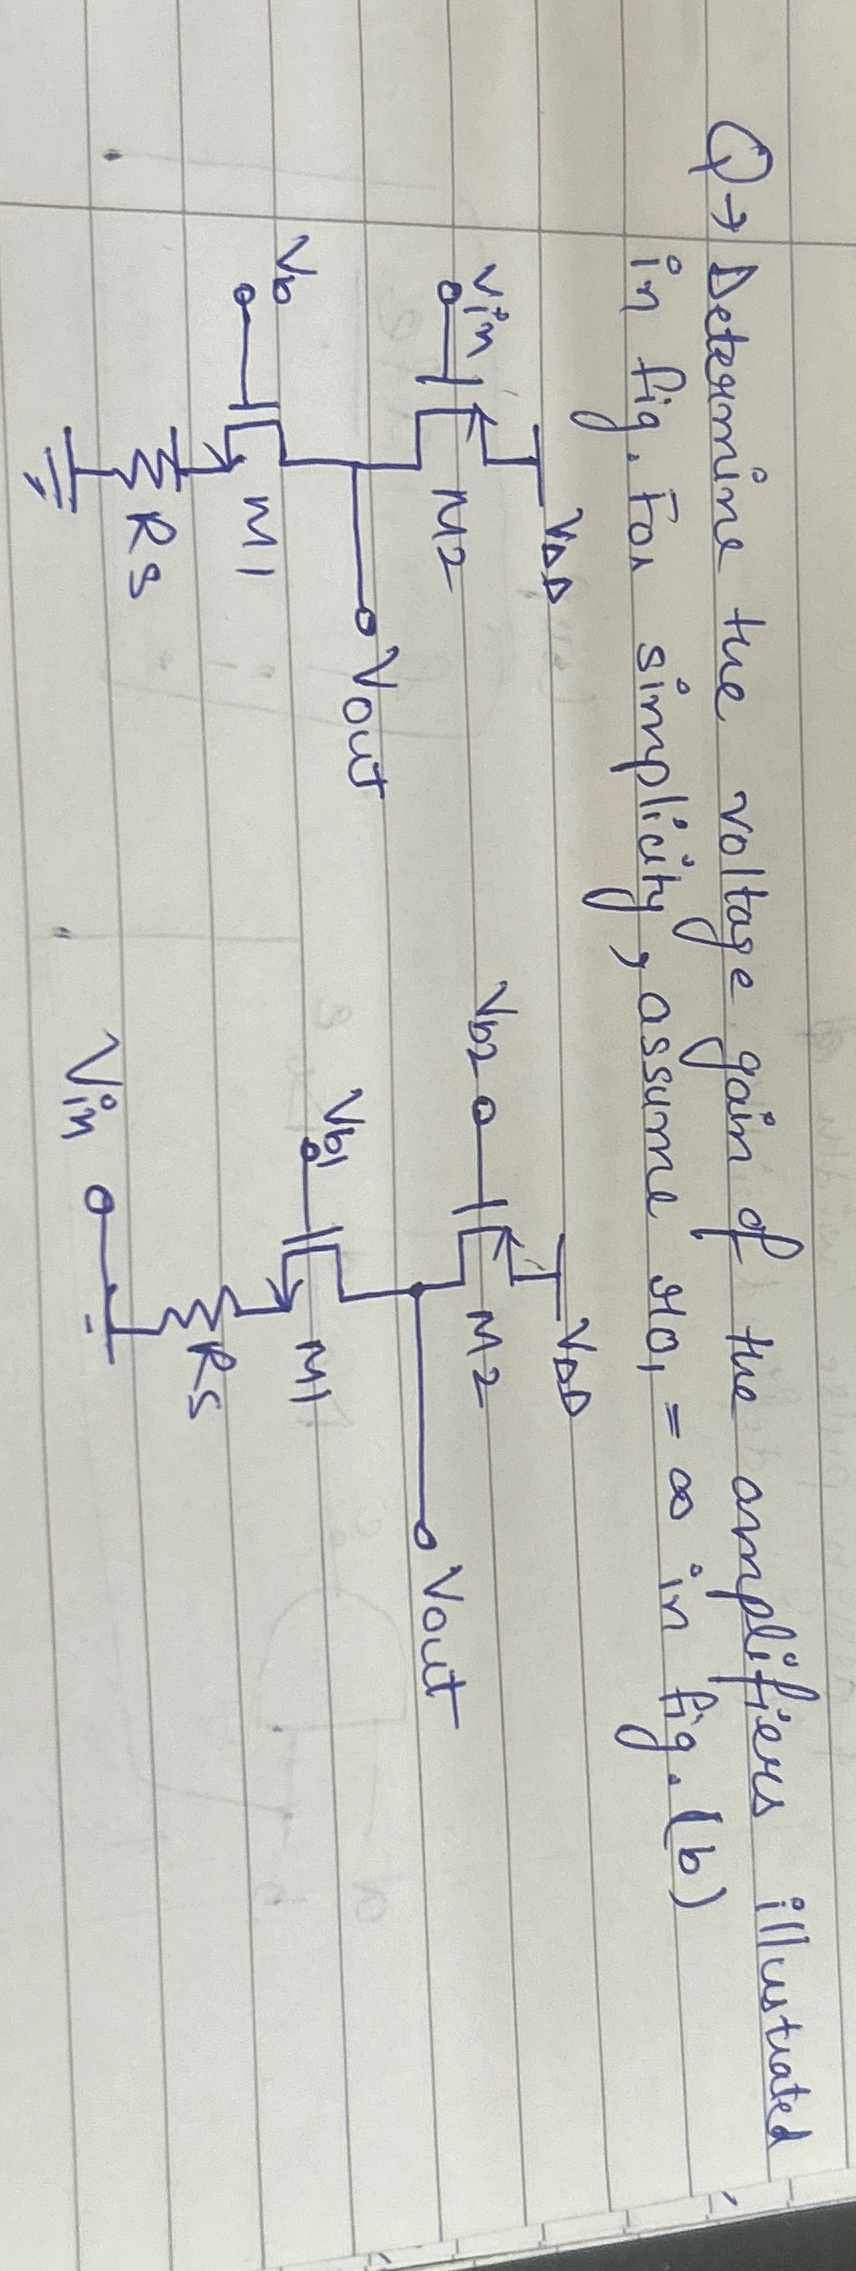 Q→ Determine the voltage gain of the amplifiers illustrated
in fig. For simplicity, assume ro1 = ∞ in fig. (b)
VDD
Vin
M2
Vout
Vb
M1
RS
VDD
Vb2
M2
Vout
Vb1
M1
RS
Vin